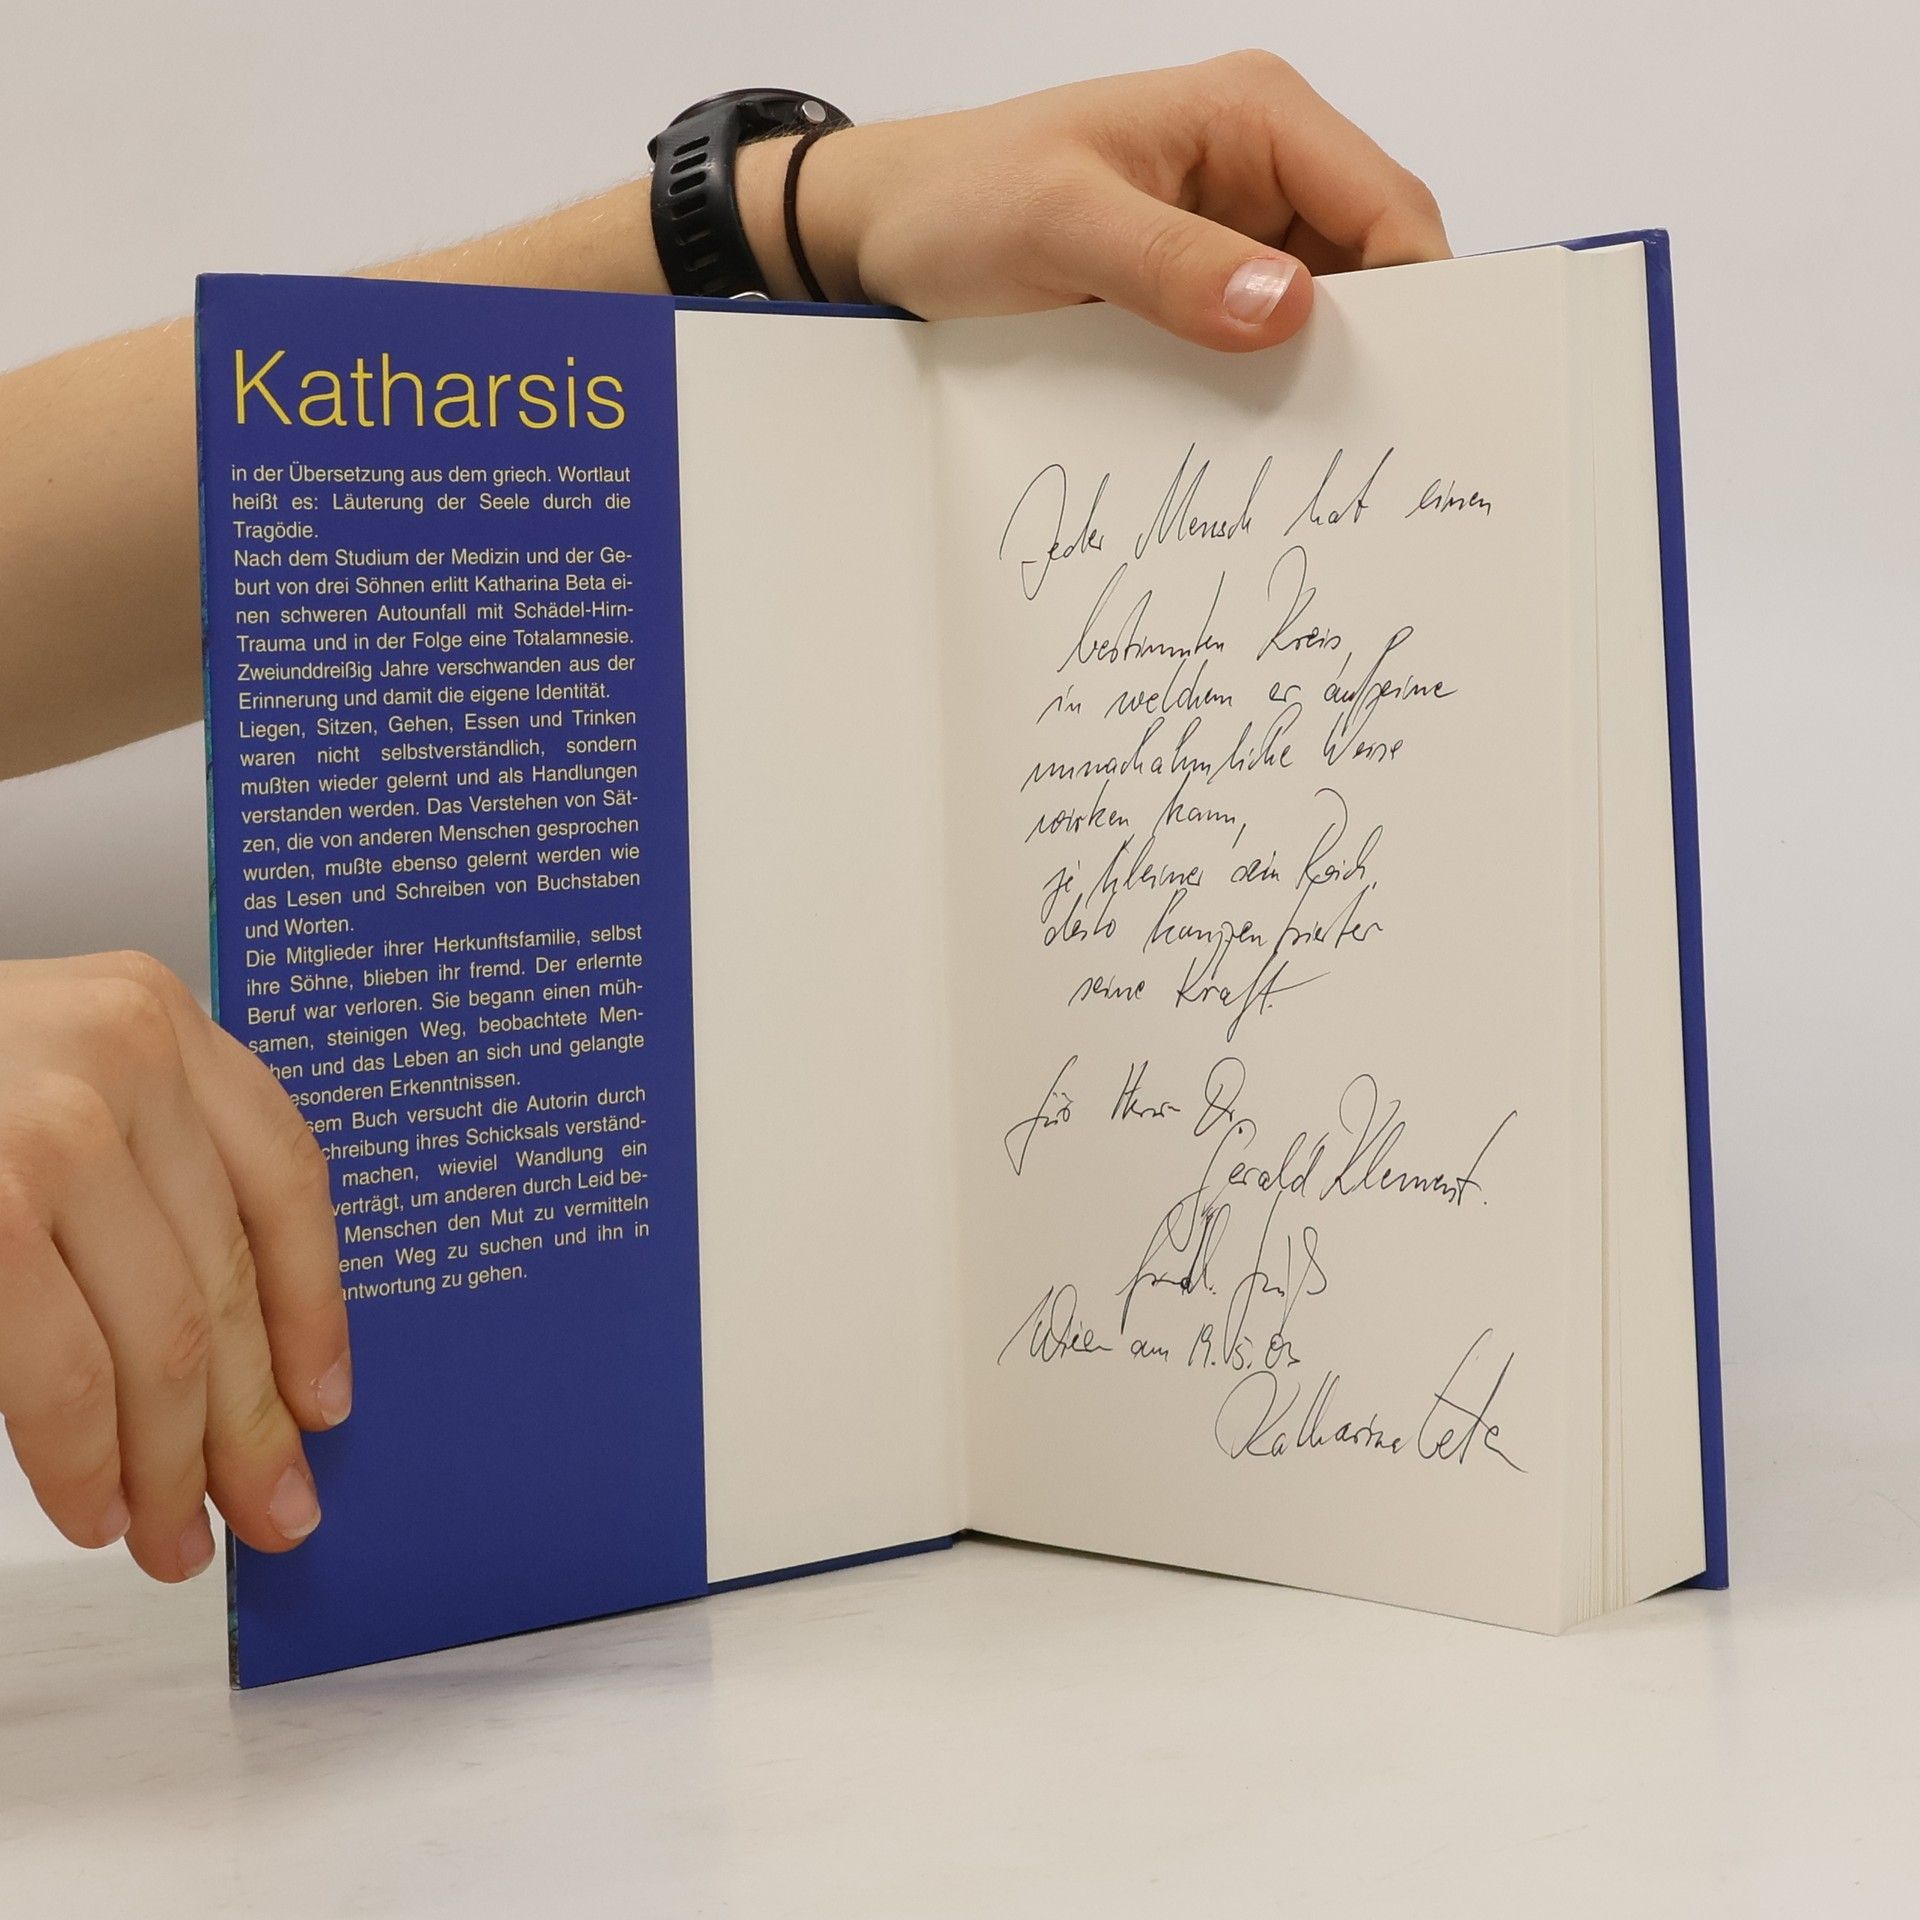 Katharsis
in der Übersetzung aus dem griech. Wortlaut
heißt es: Läuterung der Seele durch die
Tragödie.
Nach dem Studium der Medizin und der Ge-
burt von drei Söhnen erlitt Katharina Beta ei-
nen schweren Autounfall mit Schädel-Hirn-
Trauma und in der Folge eine Totalamnesie.
Zweiunddreißig Jahre verschwanden aus der
Erinnerung und damit die eigene Identität.
Liegen, Sitzen, Gehen, Essen und Trinken
waren nicht selbstverständlich, sondern
mußten wieder gelernt und als Handlungen
verstanden werden. Das Verstehen von Sät-
zen, die von anderen Menschen gesprochen
wurden, mußte ebenso gelernt werden wie
das Lesen und Schreiben von Buchstaben
und Worten.
Die Mitglieder ihrer Herkunftsfamilie, selbst
ihre Söhne, blieben ihr fremd. Der erlernte
Beruf war verloren. Sie begann einen müh-
samen, steinigen Weg, beobachtete Men-
hen und das Leben an sich und gelangte
esonderen Erkenntnissen.
sem Buch versucht die Autorin durch
chreibung ihres Schicksals verständ-
machen, wieviel Wandlung ein
verträgt, um anderen durch Leid be-
Menschen den Mut zu vermitteln
enen Weg zu suchen und ihn in
antwortung zu gehen.
Jeder Mensch hat einen
bestimmten Kreis,
in welchem er auf seine
unnachahmliche Weise
wirken kann,
je kleiner sein Reich,
desto konzentrierter
seine Kraft.
für Herrn Dr.
Gerald Klement.
frdl. Gruß
Wien am 19.5.03
Katharina Beta